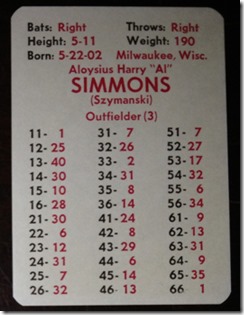 Bats: Right Throws: Right
Height: 5-11 Weight: 190
Born: 5-22-02 Milwaukee, Wisc.
Aloysius Harry "Al"
SIMMONS
(Szymanski)
Outfielder (3)
11- 1 31- 7 51- 7
12- 25 32- 26 52- 27
13- 40 33- 2 53- 17
14- 30 34- 31 54- 33
15- 10 35- 8 55- 6
16- 28 36- 14 56- 34
21- 30 41- 24 61- 9
22- 6 42- 8 62- 13
23- 12 43- 29 63- 31
24- 30 44- 22 64- 9
25- 7 45- 14 65- 35
26- 32 46- 13 66- 1